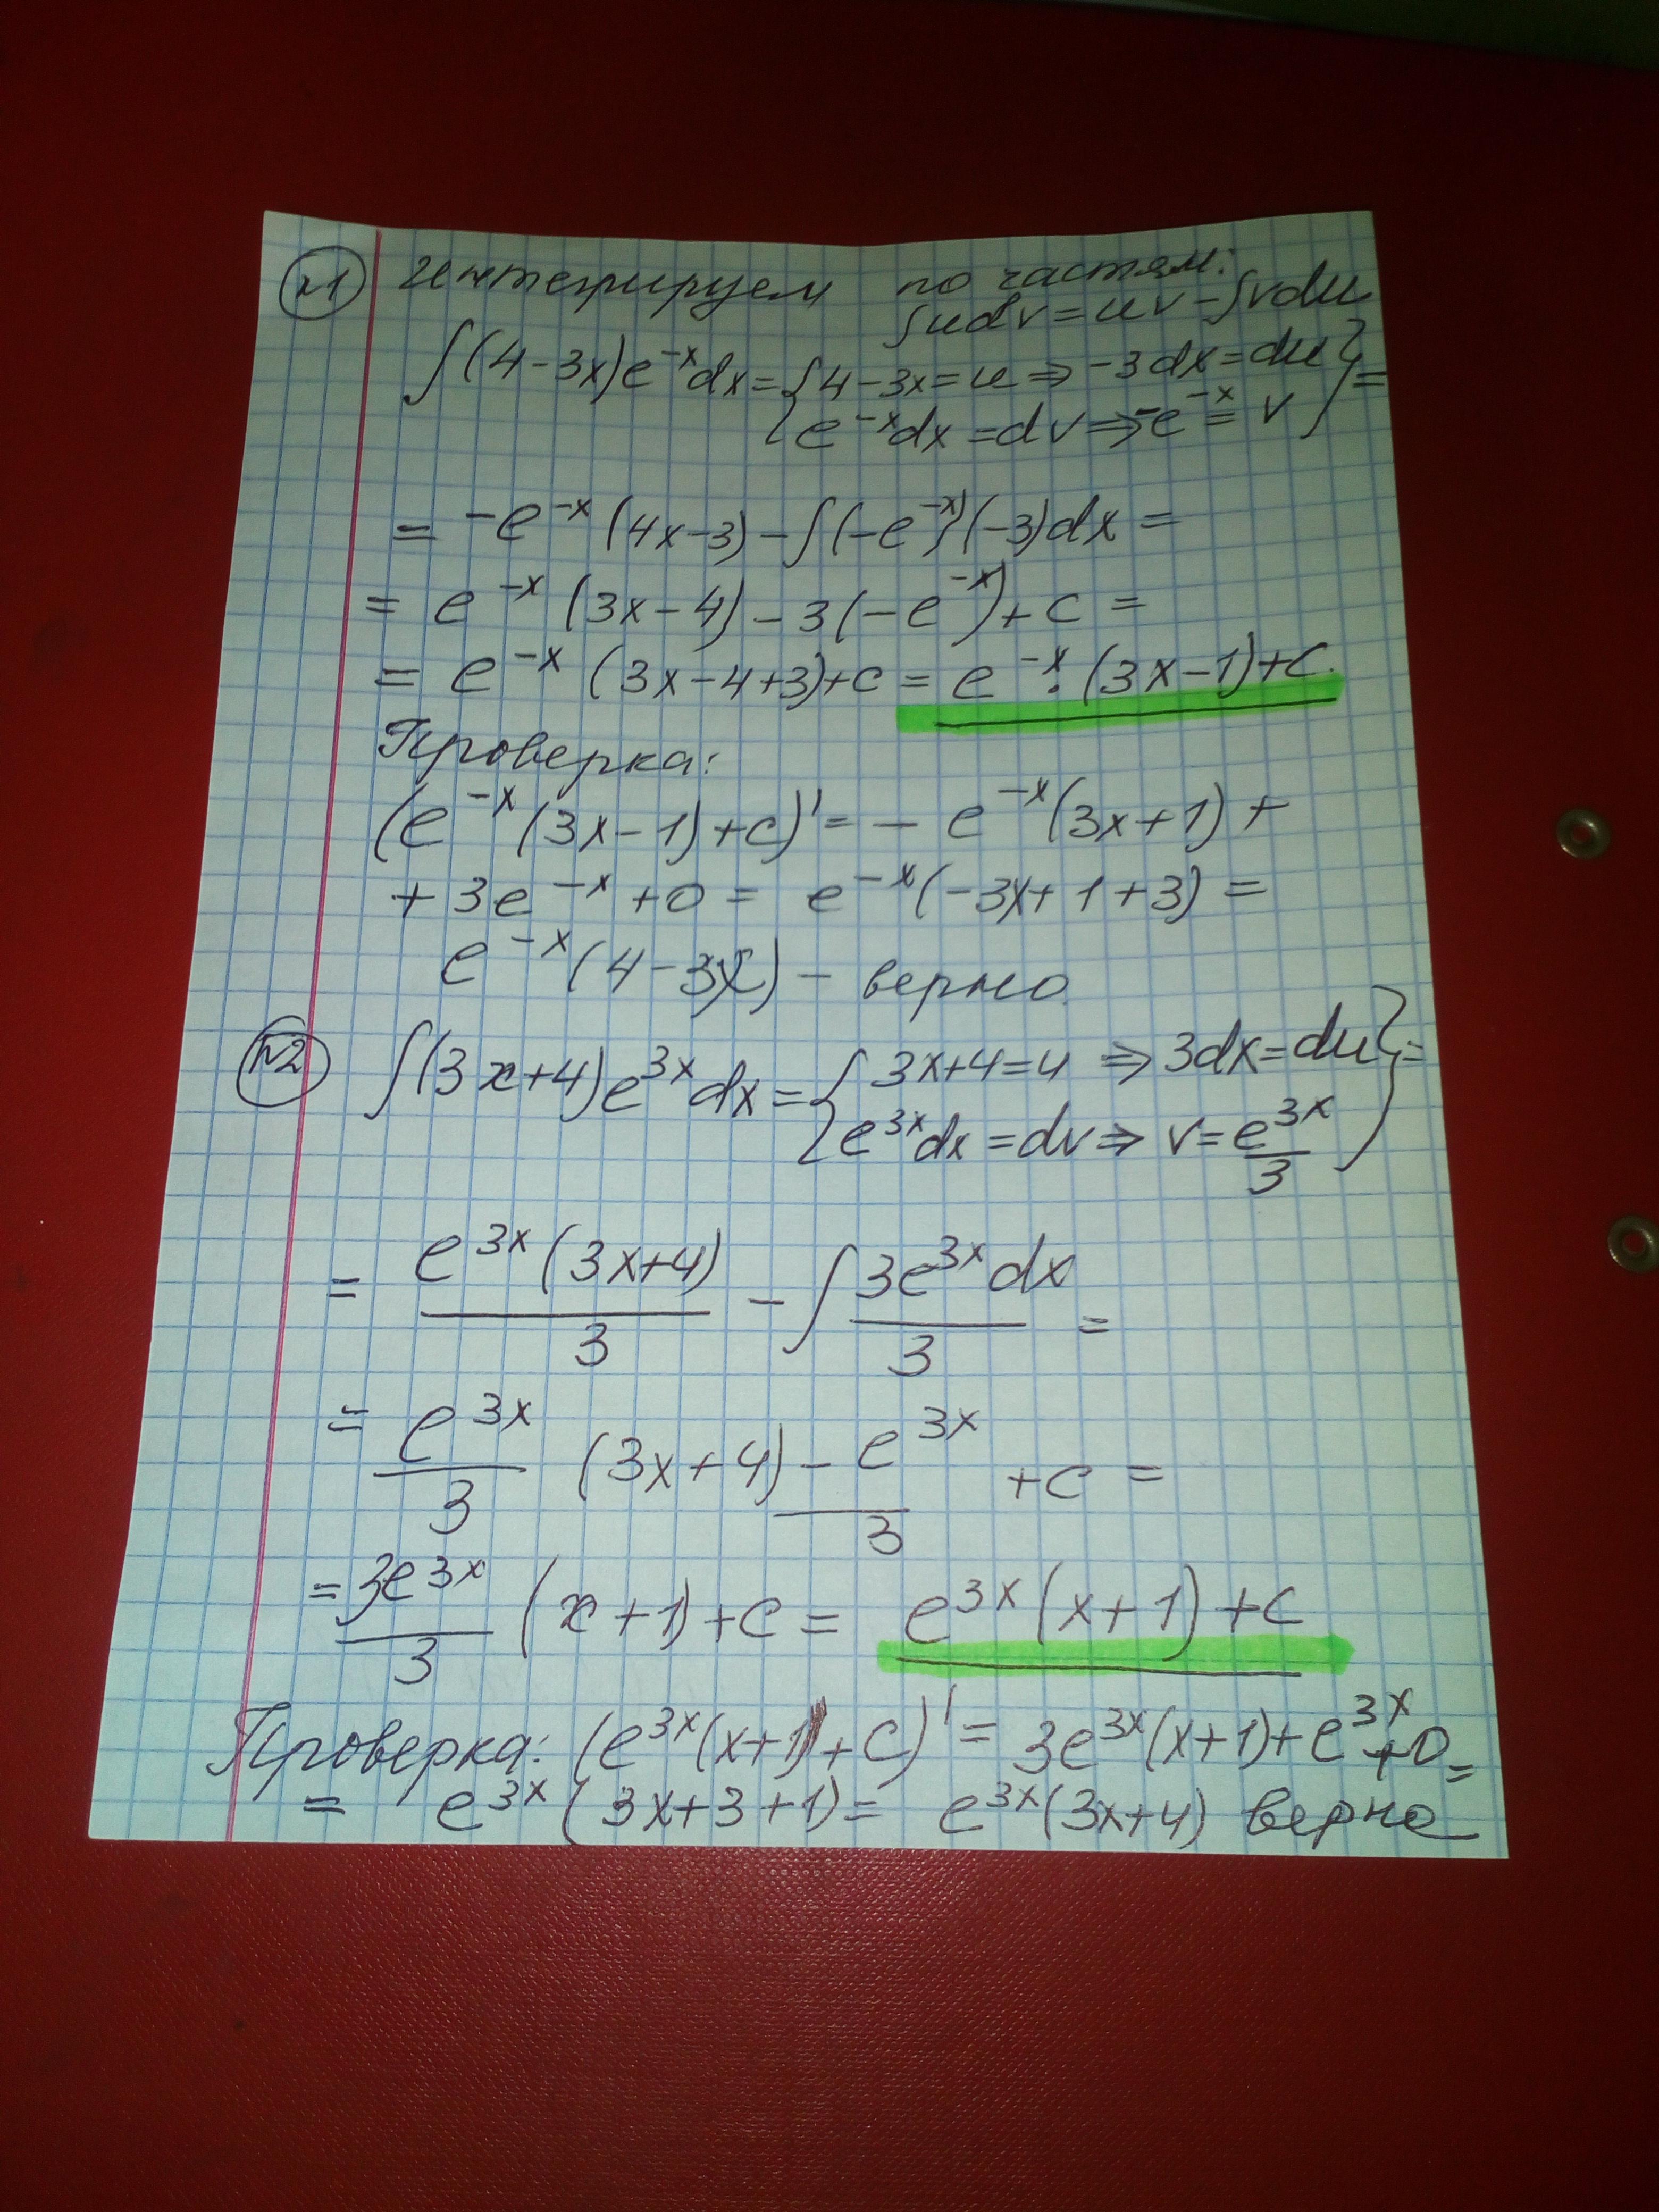 №1 Интегрируем по частям:
∫udv=uv-∫vdu
∫(4-3x)e^{-x}dx={4-3x=u⇒-3dx=du}=
{e^{-x}dx=dv⇒-e^{-x}=v}
= -e^{-x}(4x-3)-∫(-e^{-x})(-3)dx=
= e^{-x}(3x-4)-3(-e^{-x})+c=
= e^{-x}(3x-4+3)+c=e^{-x}·(3x-1)+c.
Проверка:
(e^{-x}(3x-1)+c)'=-e^{-x}(3x+1)+
+3e^{-x}+0= e^{-x}(-3x+1+3)=
e^{-x}(4-3x)- верно.
№2 ∫(3x+4)e^{3x}dx={3x+4=u ⇒3dx=du}=
{e^{3x}dx=dv⇒ v=e^{3x}/3}
= e^{3x}(3x+4)/3 - ∫3e^{3x}dx/3 =
= e^{3x}/3 (3x+4)-e^{3x}/3 +c=
=3e^{3x}/3 (x+1)+c= e^{3x}(x+1)+c
Проверка: (e^{3x}(x+1)+c)'= 3e^{3x}(x+1)+e^{3x}+0=
= e^{3x}(3x+3+1)= e^{3x}(3x+4) верно